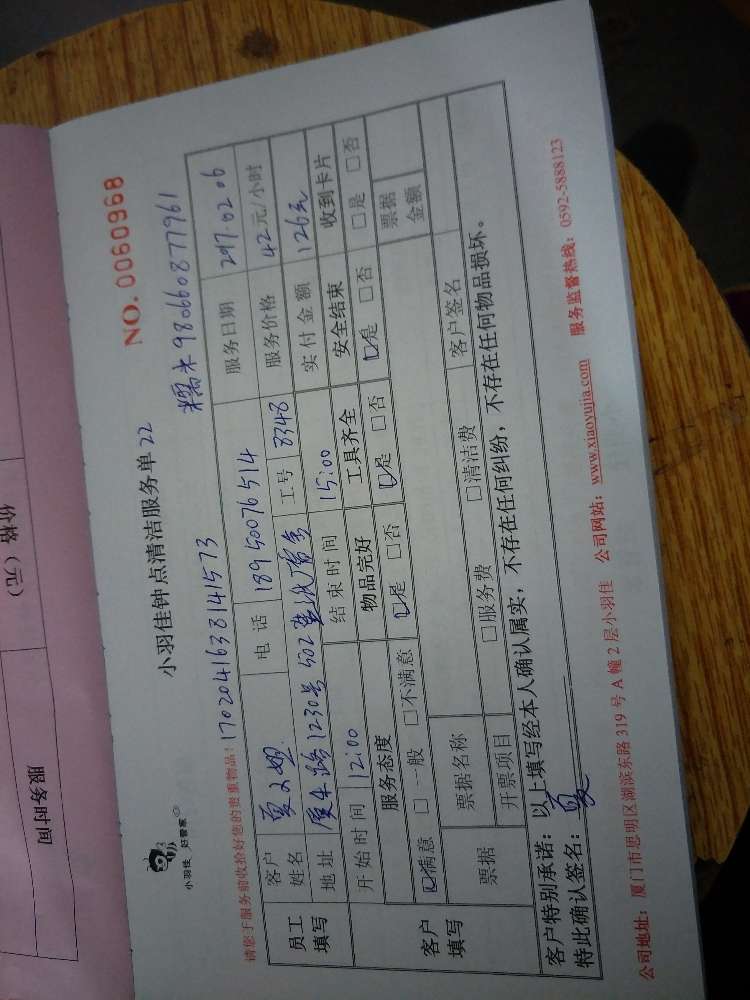 小羽佳 好管家
小羽佳钟点清洁服务单 22
NO. 0060968
请您于服务前收拾好您的贵重物品! 1702041638141573 糯米 9806608777961
员工填写
客户姓名 夏 电话 18950076514 服务日期 2017.02.06
地址 厦禾路1230号502 工号 8348 服务价格 42元/小时
开始时间 12:00 结束时间 15:00 实付金额 126元
客户填写
服务态度 物品完好 工具齐全 安全结束 收到卡片
☑满意 □一般 □不满意 ☑是 □否 ☑是 □否 ☑是 □否 □是 □否
票据 票据名称 票据金额
开票项目 □服务费 □清洁费 客户签名
客户特别承诺: 以上填写经本人确认属实,不存在任何纠纷,不存在任何物品损坏。
特此确认签名: 夏
公司地址: 厦门市思明区湖滨东路 319 号 A 幢 2 层小羽佳 公司网站: www.xiaoyujia.com 服务监督热线: 0592-5888123
服务时间
价格(元)